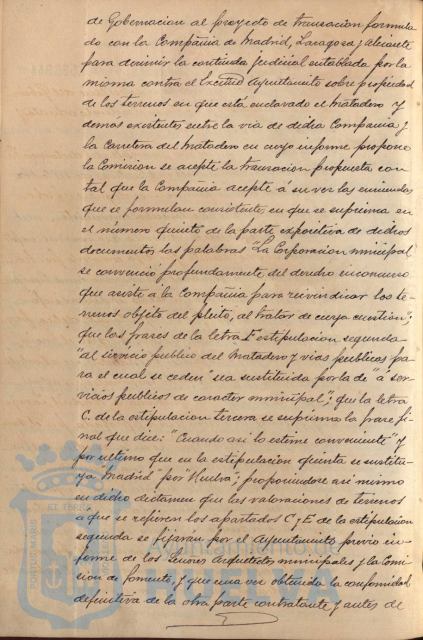 de Gobernacion al proyecto de transacion formula
do con la Compañia de Madrid, Zaragoza y Alicante
para dirimir la contienda judicial entablada por la
misma contra el Excmo Ayuntamiento sobre propiedad
de los terrenos en que está enclavado el Matadero y
demás existentes entre la via de dicha Compañia y
la Carretera del Matadero en cuyo informe propone
la Comision se acepte la transacion propuesta con
tal que la Compañia acepte á su vez las enmiendas
que se formulan consistentes en que se suprima en
el número quinto de la parte expositiva de dichos
documentos las palabras "La Corporacion municipal
se convenció profundamente del derecho inconcuso
que asiste á la Compañia para reivindicar los te-
rrenos objeto del pleito, al tratar de cuya cuestion";
que las frases de la letra E estipulacion segunda
"al servicio publico del Matadero y vias publicas pa
ra el cual se ceden" sea sustituida por la de "á ser-
vicios publicos de caracter municipal"; que la letra
C. de la estipulacion tercera se suprima la frase fi
nal que dice: "Cuando asi lo estime conveniente" y
por ultimo que en la estipulacion quinta se sustitu-
ya "Madrid" por "Huelva; proponiendose asi mismo
en dicho dictamen que las valoraciones de terrenos
a que se refieren los apartados C y E de la estipulacion
segunda se fijaran por el Ayuntamiento previo in-
forme de los Señores Arquitectos municipales y la Comi
sion de fomento, y que una vez obtenida la conformidad
definitiva de la otra parte contratante y antes de
Ayuntamiento de
HUELVA
PORTUS MARIS
ET TERRE